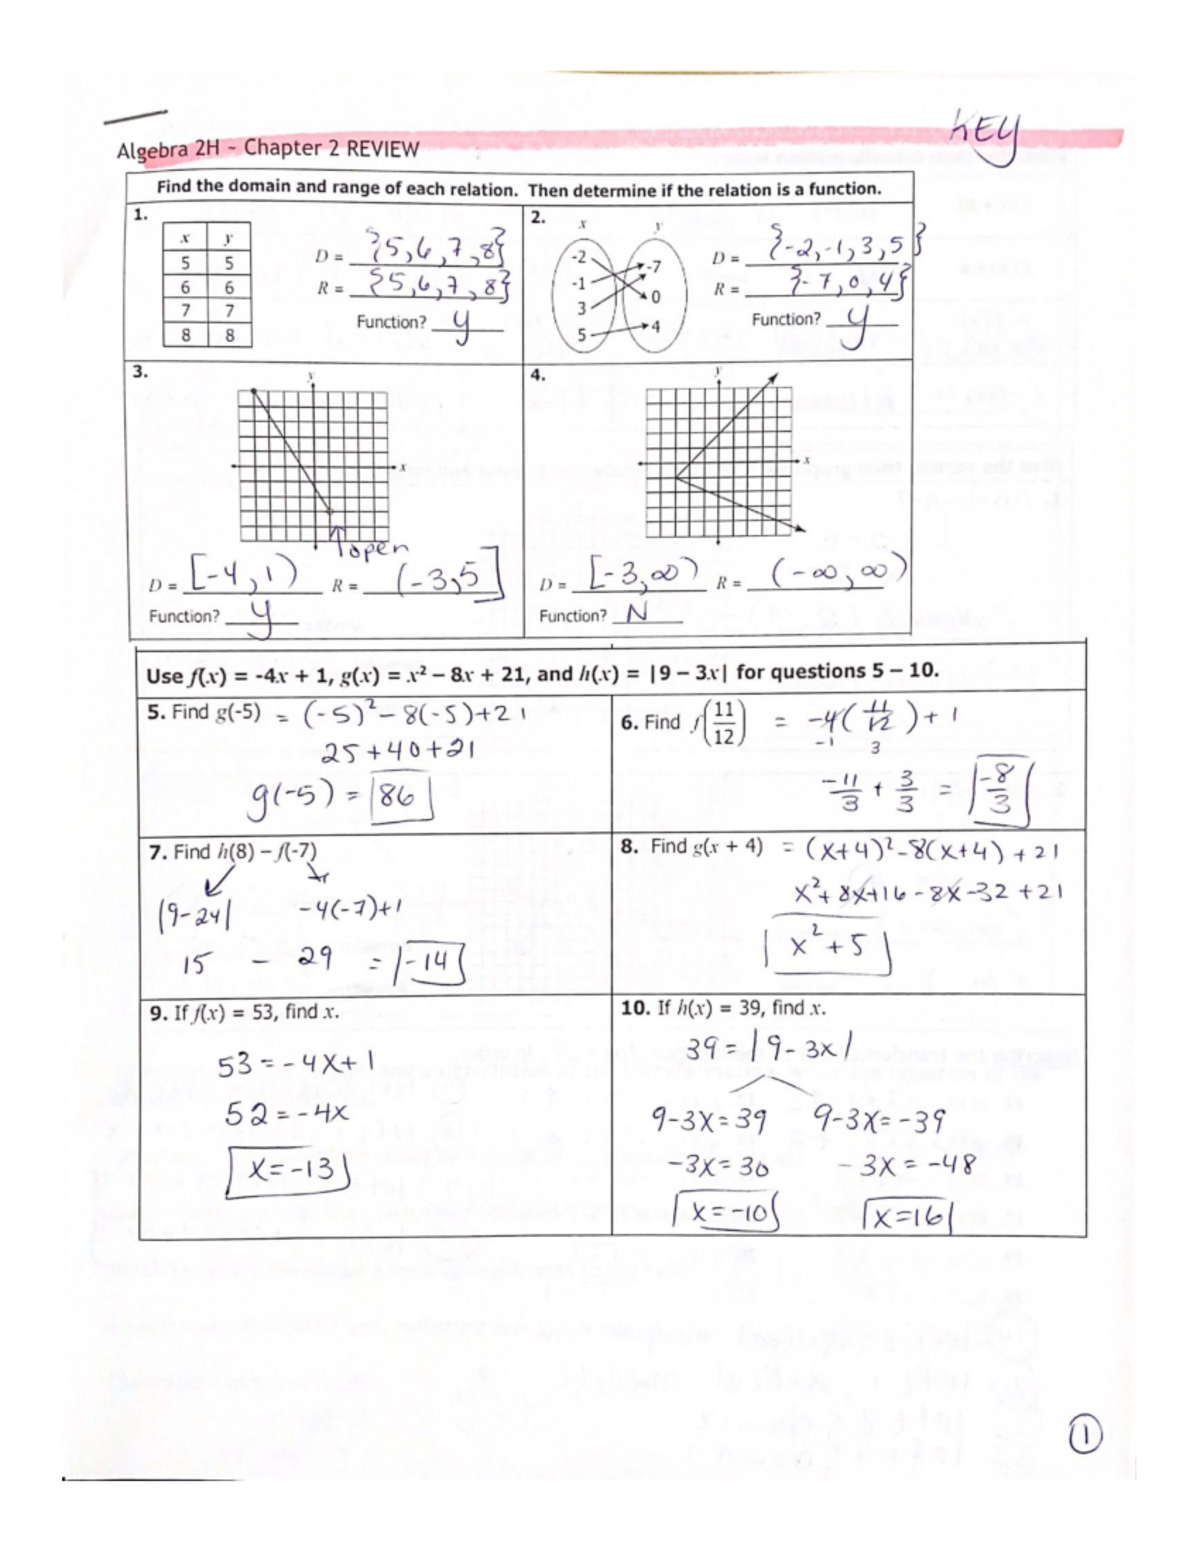 KEY
Algebra 2H ~ Chapter 2 REVIEW
Find the domain and range of each relation. Then determine if the relation is a function.
1.
x y
5 5
6 6
7 7
8 8
D = {5,6,7,8}
R = {5,6,7,8}
Function? y
2.
x y
-2
-1
3
5
-7
0
4
D = {-2,-1,3,5}
R = {-7,0,4}
Function? y
3.
y
x
open
D = [-4,1) R = (-3,5]
Function? y
4.
y
x
D = [-3,∞) R = (-∞,∞)
Function? N
Use f(x) = -4x + 1, g(x) = x² – 8x + 21, and h(x) = |9 – 3x| for questions 5 – 10.
5. Find g(-5) = (-5)²-8(-5)+21
25+40+21
g(-5) = 86
6. Find f(11/12) = -4(11/12)+1
-1 3
-11/3 + 3/3 = -8/3
7. Find h(8) – f(-7)
|9-24| -4(-7)+1
15 - 29 = -14
8. Find g(x + 4) = (x+4)²-8(x+4)+21
x²+8x+16-8x-32+21
x²+5
9. If f(x) = 53, find x.
53=-4x+1
52=-4x
x=-13
10. If h(x) = 39, find x.
39=|9-3x|
9-3x=39 9-3x=-39
-3x=30 -3x=-48
x=-10 x=16
1